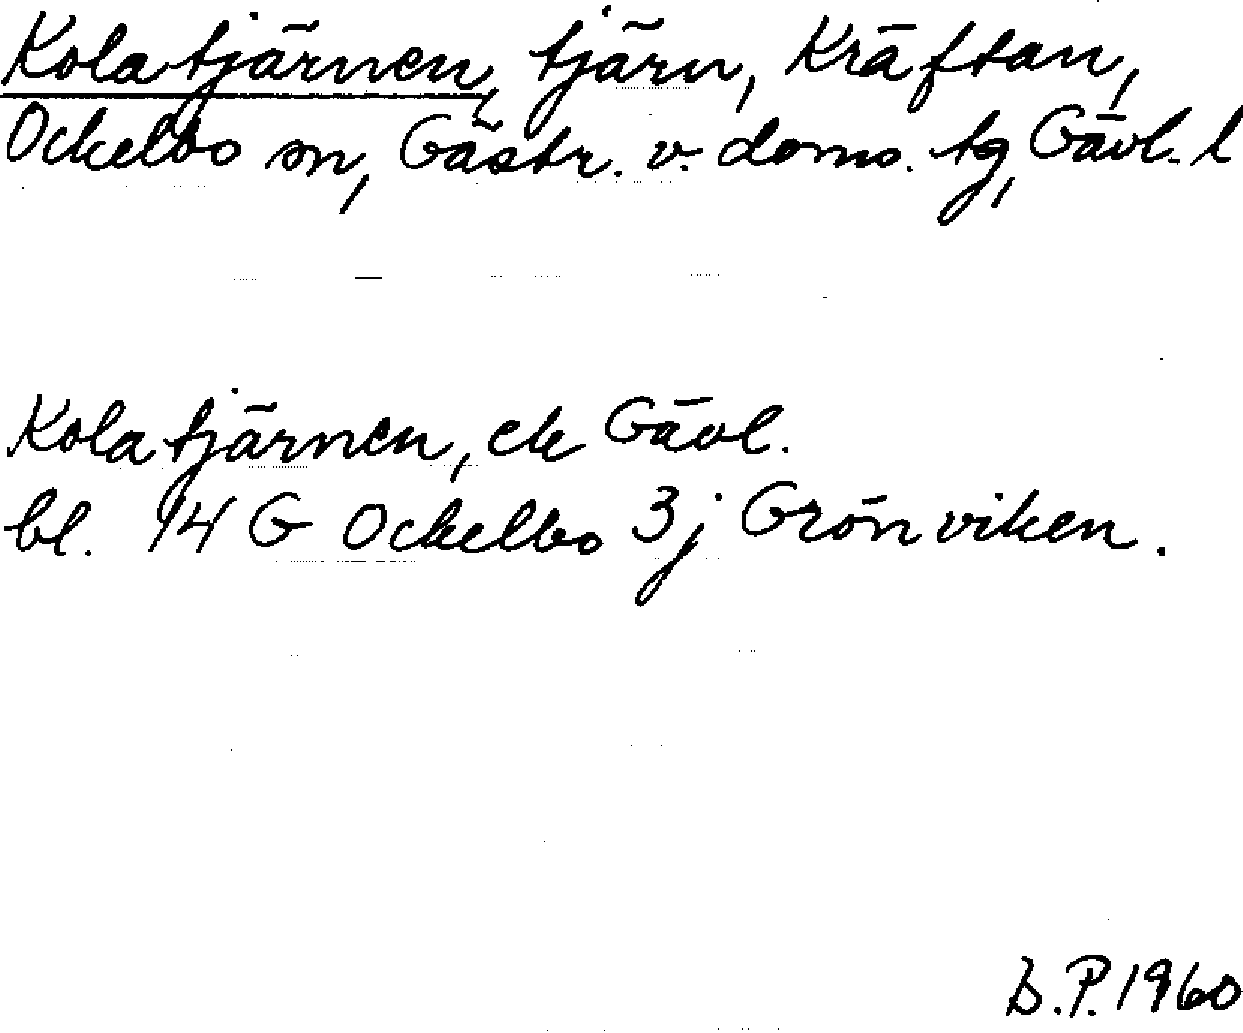 Kolatjärnen, tjärn, Kräftan,
Ockelbo sn, Gästr. v. doms. tg, Gävl. l
Kolatjärnen, ek Gävl.
bl. 14 G Ockelbo 3j Grönviken.
B.P. 1960